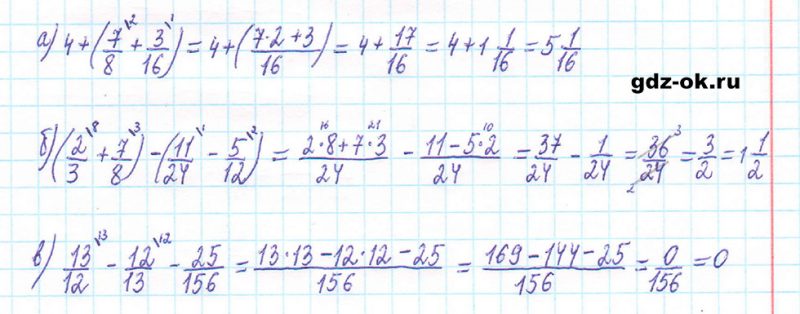 а) 4+(7/8\2 + 3/16\1) = 4+((7·2+3)/16) = 4+17/16 = 4+1 1/16 = 5 1/16
gdz-ok.ru
б) (2/3\8 + 7/8\3) - (11/24\1 - 5/12\2) = (2·8+7·3)/24 16 21 - (11-5·2)/24 10 = 37/24 - 1/24 = 36/24 3 2 = 3/2 = 1 1/2
в) 13/12\13 - 12/13\12 - 25/156 = (13·13-12·12-25)/156 = (169-144-25)/156 = 0/156 = 0